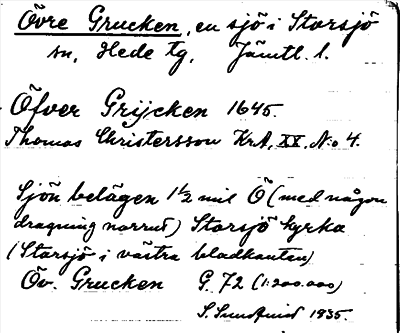 Övre Grucken, en sjö i Storsjö
sn, Hede tg, Jämtl. l.
Öfver Grijcken 1645.
Thomas Christersson KrA, XX, No 4.
Sjön belägen 1½ mil Ö (med någon
dragning norrut) Storsjö kyrka
(Storsjö i västra bladkanten)
Öv. Grucken G. 72 (1:200.000)
S. Sundquist 1935.